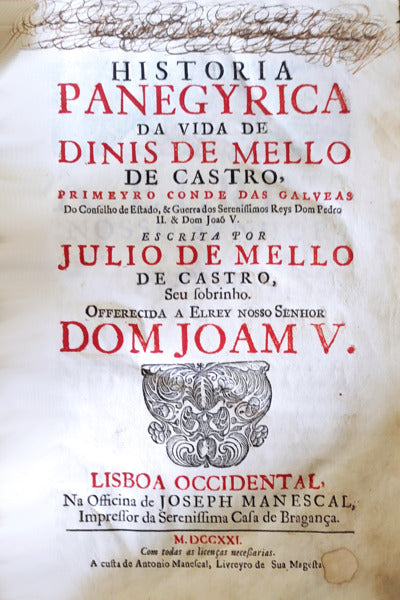 HISTORIA
PANEGYRICA
DA VIDA DE
DINIS DE MELLO
DE CASTRO,
PRIMEYRO CONDE DAS GALVEAS
Do Conſelho de Eſtado, & Guerra dos Sereniſſimos Reys Dom Pedro
II. & Dom Joaõ V.
ESCRITA POR
JULIO DE MELLO
DE CASTRO,
Seu ſobrinho.
OFFERECIDA A ELREY NOSSO SENHOR
DOM JOAM V.
LISBOA OCCIDENTAL,
Na Officina de JOSEPH MANESCAL,
Impreſſor da Sereniſſima Caſa de Bragança.
M. DCCXXI.
Com todas as licenças neceſſarias.
A cuſta de Antonio Maneſcal, Livreyro de Sua Mageſta